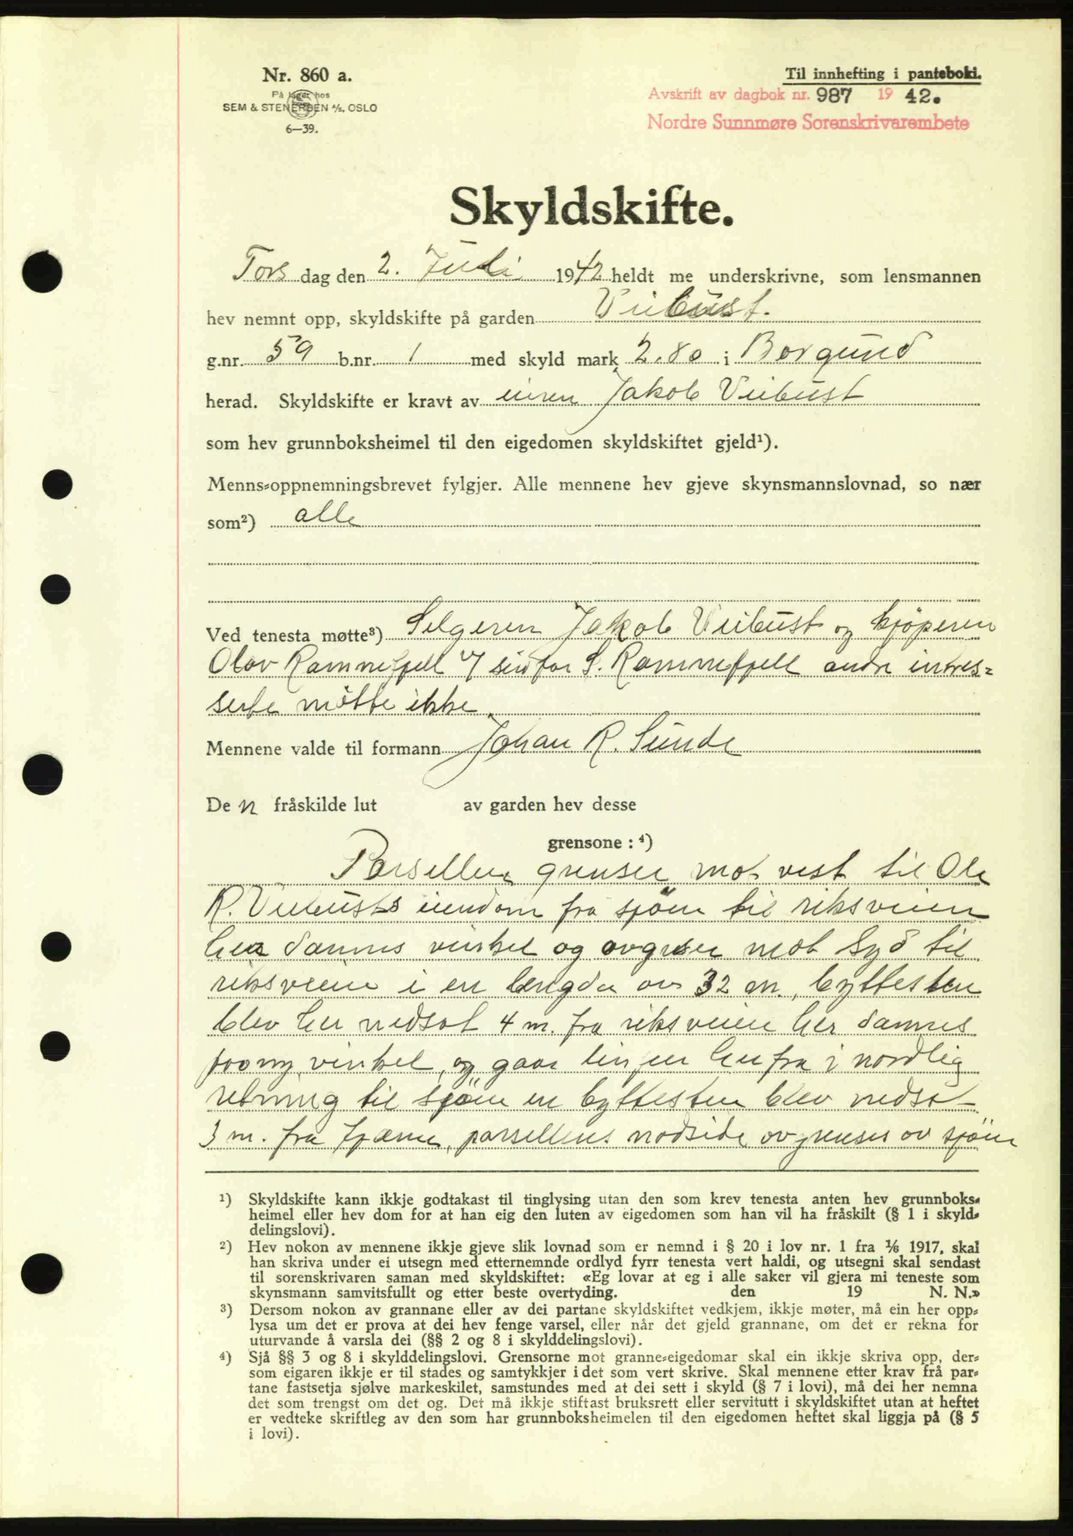 Nr. 860 a.
På lager hos
SEM & STENERSEN A/S, OSLO
6—39.
Til innhefting i panteboki.
Avskrift av dagbok nr. 987 1942.
Nordre Sunnmøre Sorenskrivarembete
Skyldskifte.
Tors dag den 2. Juli 1942 heldt me underskrivne, som lensmannen
hev nemnt opp, skyldskifte på garden Veibust.
g.nr. 59 b.nr. 1 med skyld mark 2.80 i Borgund
herad. Skyldskifte er kravt av eieren Jakob Veibust
som hev grunnboksheimel til den eigedomen skyldskiftet gjeld¹).
Menns-oppnemningsbrevet fylgjer. Alle mennene hev gjeve skynsmannslovnad, so nær
som²) alle
Ved tenesta møtte³) Selgeren Jakob Veibust og kjöperen
Olav Rammefjell v/ sin far S. Rammefjell andre intres=
serte mötte ikke
Mennene valde til formann Johan R. Sunde
De n fråskilde lut av garden hev desse
grensone : ⁴)
Parsellen grenser mot vest til Ole
R. Veibusts eiendom fra sjöen til riksveien
her dannes vinkel og avgrenser mot syd til
riksveien i en lengde av 32 m., byttesten
blev her nedsat 4 m. fra riksveien her dannes
paany vinkel, og gaar linjen herfra i nordlig
retning til sjöen en byttesten blev nedsat
3 m. fra fjæren, parsellens nordside avgrenses av sjöen
¹) Skyldskifte kann ikkje godtakast til tinglysing utan den som krev tenesta anten hev grunnboks-
heimel eller hev dom for at han eig den luten av eigedomen som han vil ha fråskilt (§ 1 i skyld-
delingslovi).
²) Hev nokon av mennene ikkje gjeve slik lovnad som er nemnd i § 20 i lov nr. 1 fra 1/6 1917, skal
han skriva under ei utsegn med etternemnde ordlyd fyrr tenesta vert haldi, og utsegni skal sendast
til sorenskrivaren saman med skyldskiftet: «Eg lovar at eg i alle saker vil gjera mi teneste som
skynsmann samvitsfullt og etter beste overtyding. den 19 N. N.»
³) Dersom nokon av grannane eller av dei partane skyldskiftet vedkjem, ikkje møter, må ein her opp-
lysa um det er prova at dei hev fenge varsel, eller når det gjeld grannane, om det er rekna for
uturvande å varsla dei (§§ 2 og 8 i skylddelingslovi).
⁴) Sjå §§ 3 og 8 i skylddelingslovi. Grensorne mot granne-eigedomar skal ein ikkje skriva opp, der-
som eigaren ikkje er til stades og samtykkjer i det som vert skrive. Skal mennene etter krav frå par-
tane fastsetja sjølve markeskilet, samstundes med at dei sett i skyld (§ 7 i lovi), må dei her nemna
det som trengst om det og. Det må ikkje stiftast bruksrett eller servitutt i skyldskiftet utan at heftet
er vedteke skriftleg av den som har grunnboksheimelen til den eigedomen heftet skal liggja på (§ 5
i lovi).